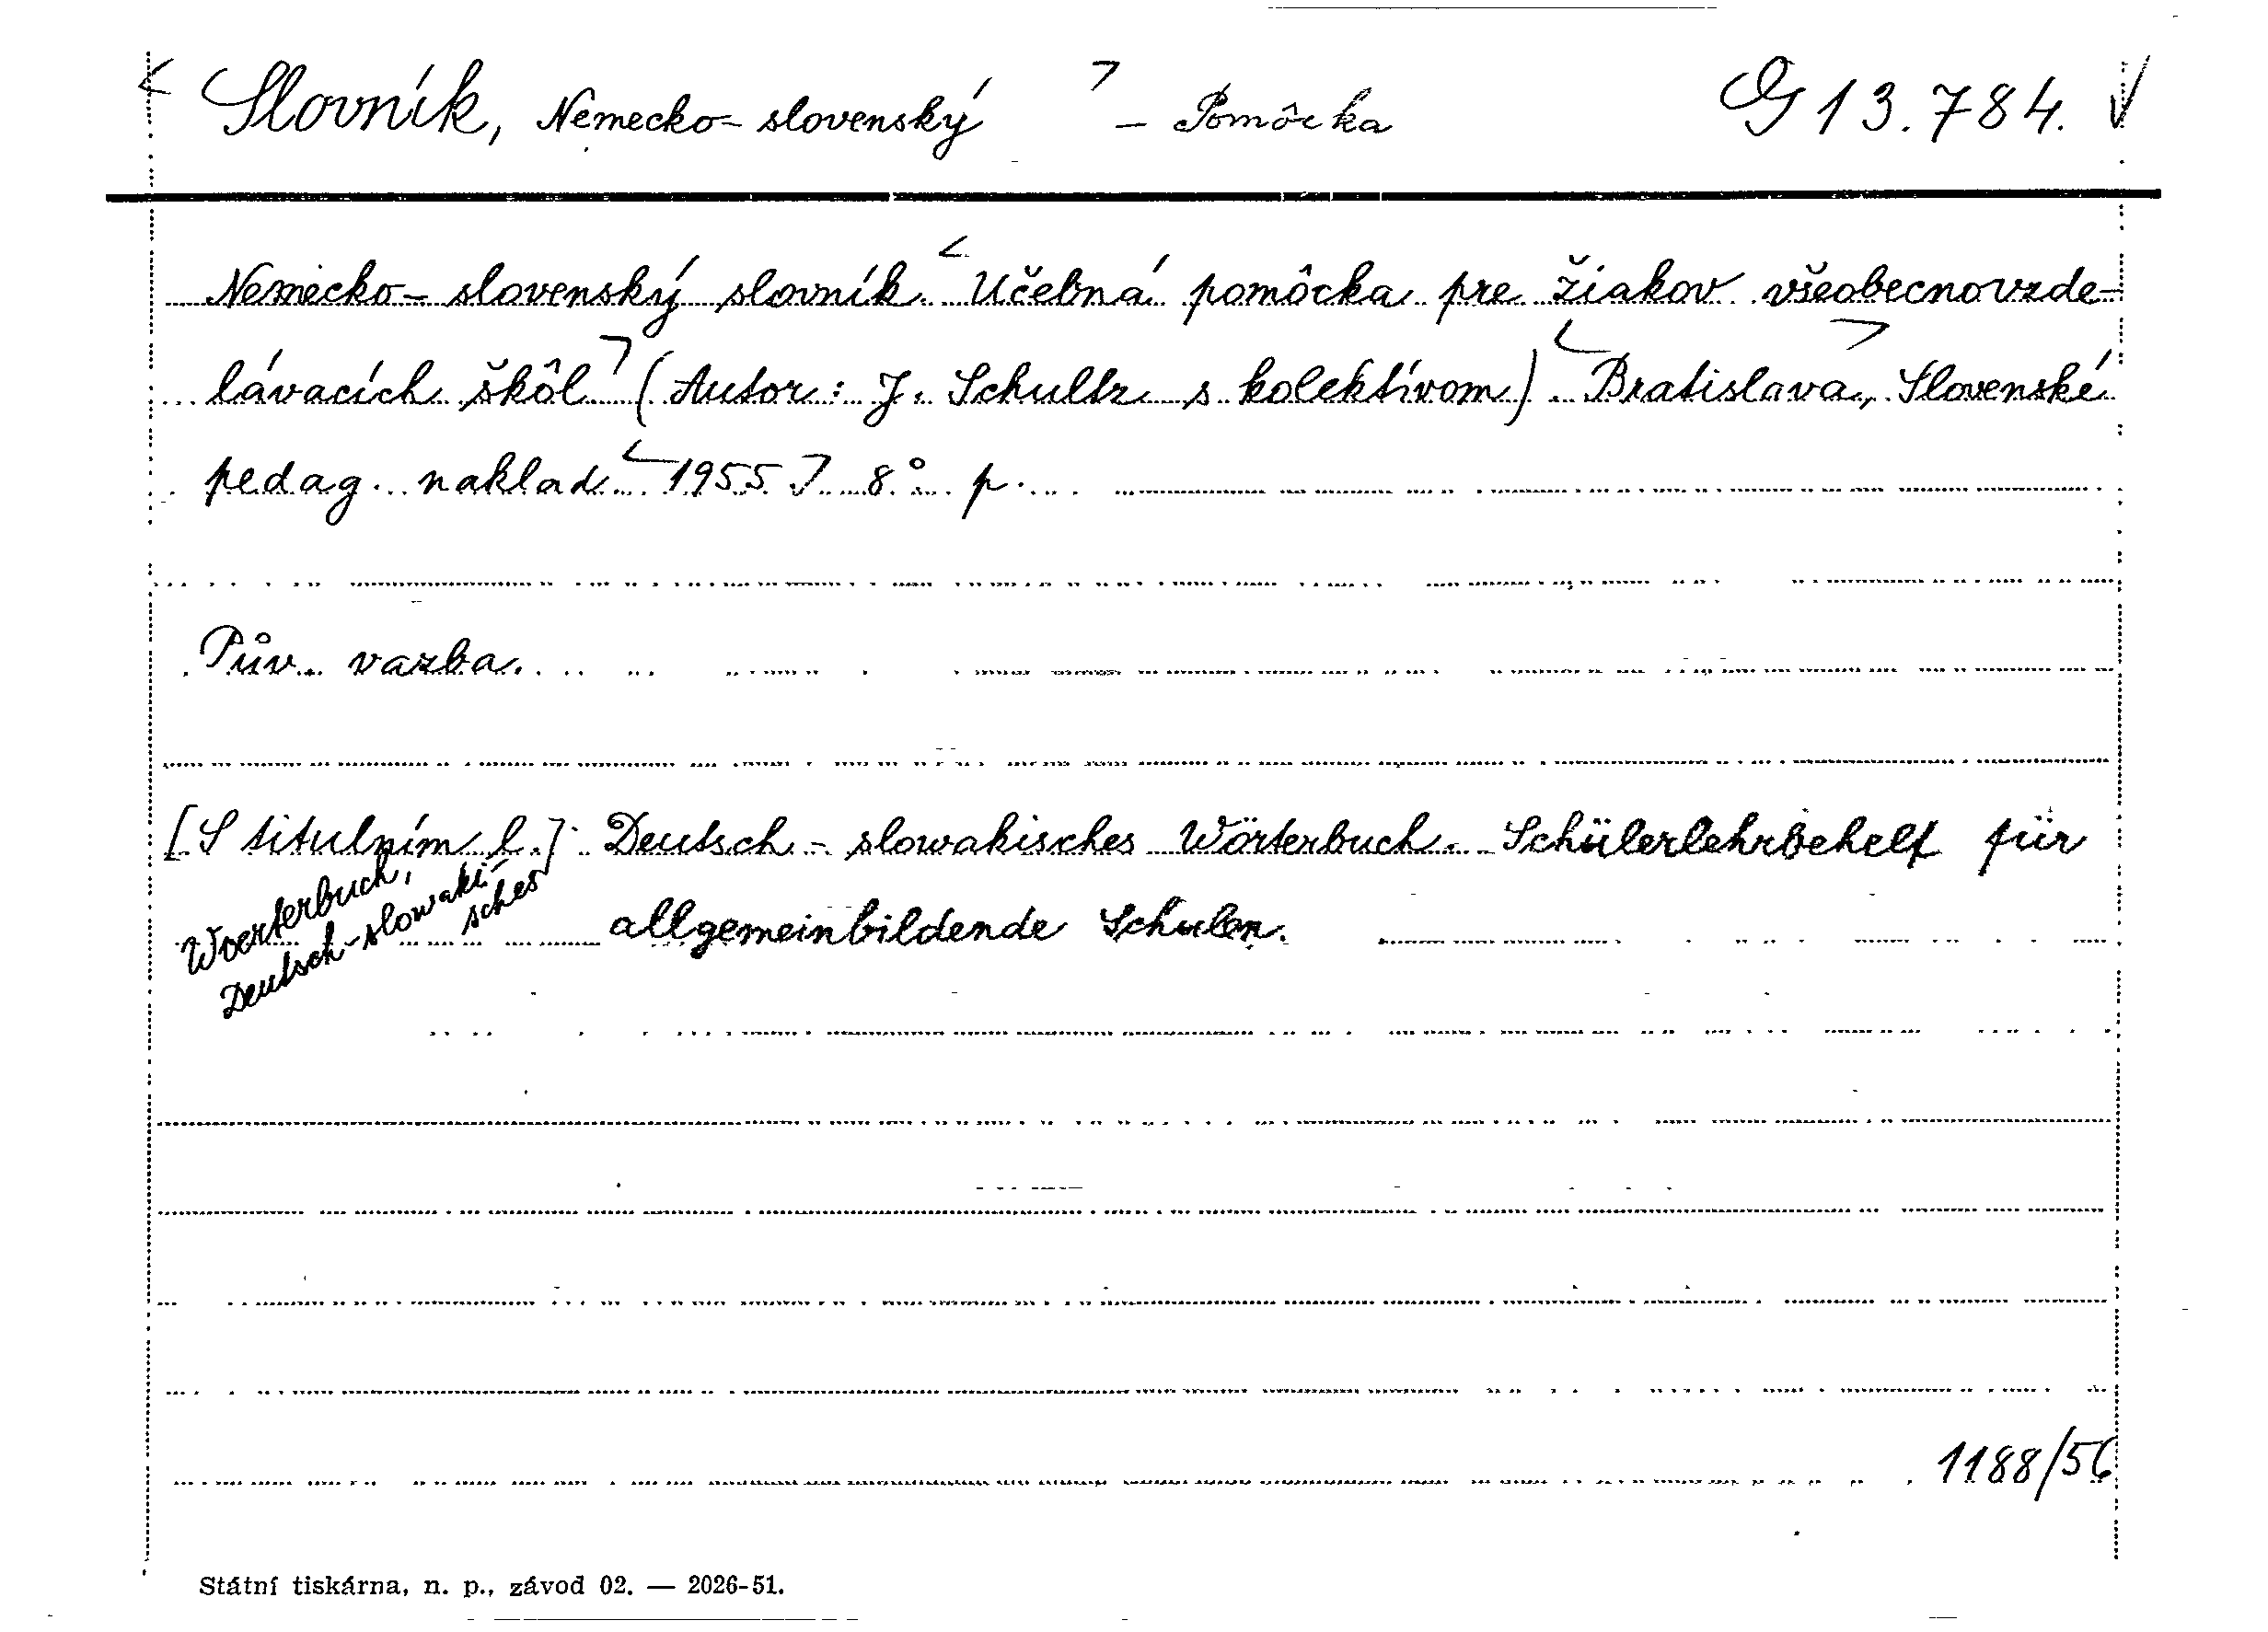 < Slovník, Nemecko-slovenský > - Pomôcka G 13.784. √
Nemecko-slovenský slovník. < Učebná pomôcka pre žiakov všeobecnovzde-
lávacích škôl > (Autor: J. Schultz s kolektívom). < Bratislava >, Slovenské
pedag. naklad. < 1955 > 8° p.
Pův. vazba.
[S titulním l.]: Deutsch-slowakisches Wörterbuch. Schülerlehrbehelf für
allgemeinbildende Schulen.
Woerterbuch,
Deutsch-slowaki-
sches
1188/56
Státní tiskárna, n. p., závod 02. — 2026-51.